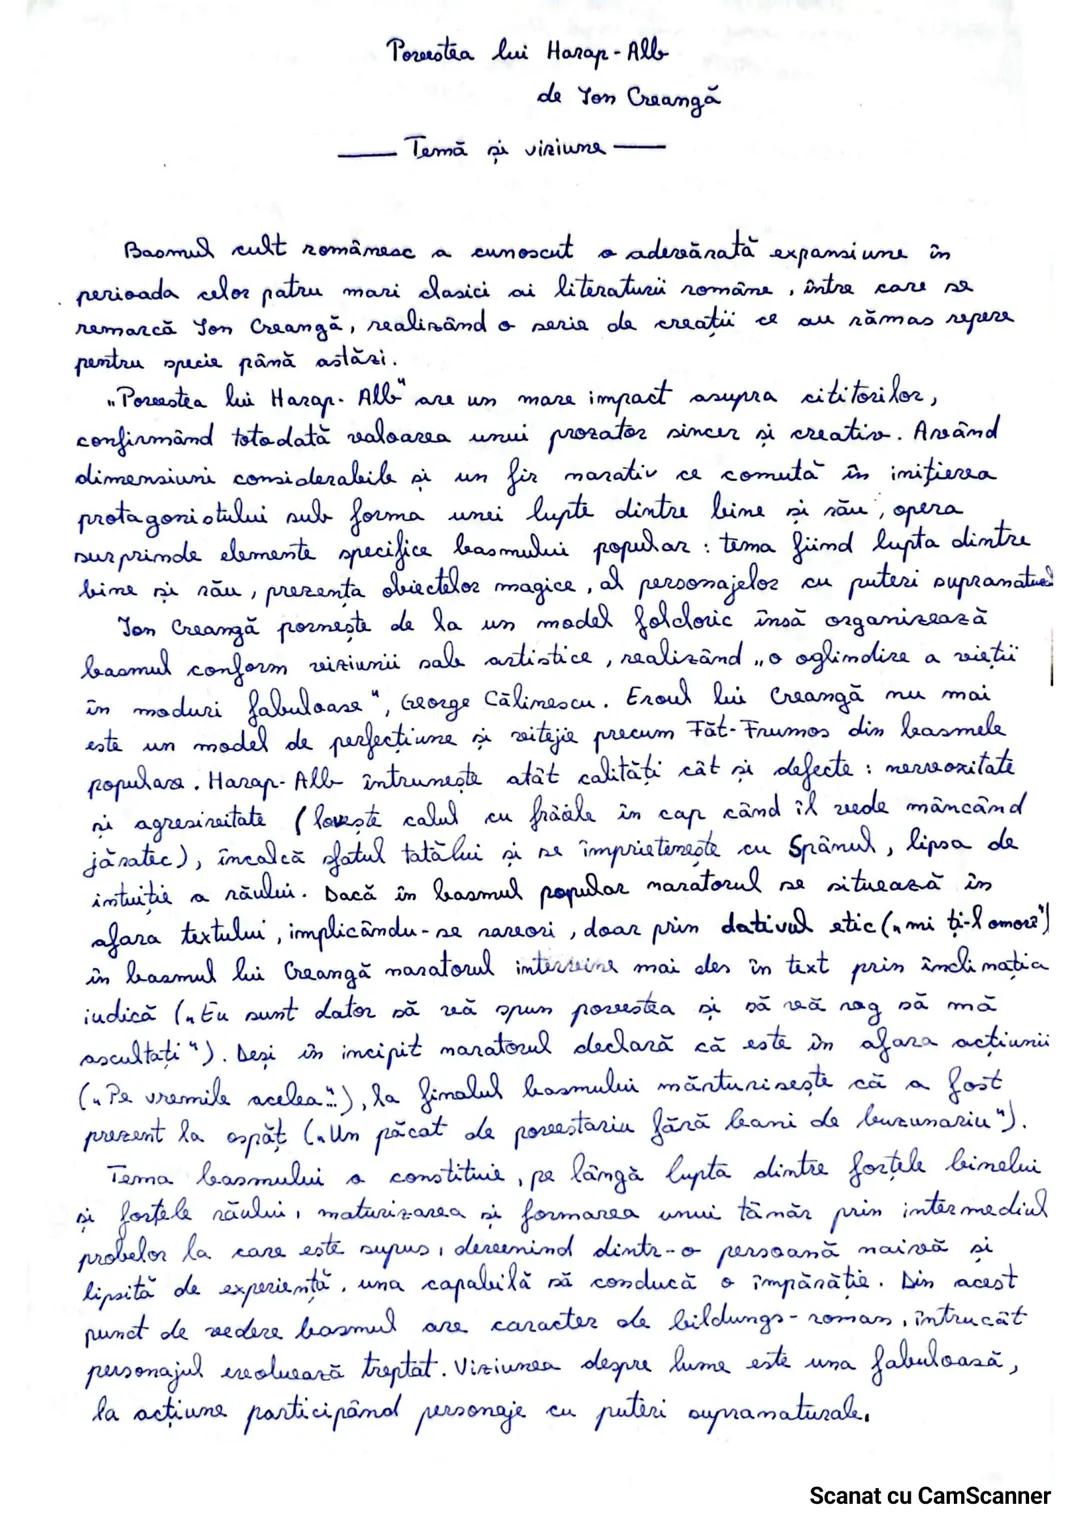 Povestea lui Harap-Alb
de Ion Creangă
Temă și viziune
Basmul cult românesc a cunoscut o adevărată expansiune în
perioada celor patru mari clasici ai literaturii române, între care se
remarcă Ion Creangă, realizând o serie de creații ce au rămas repere
pentru specie până astăzi.
„Povestea lui Harap-Alb" are un mare impact asupra cititorilor,
confirmând totodată valoarea unui prozator sincer și creativ. Având
dimensiuni considerabile și un fir narativ ce comută în inițierea
protagonistului sub forma unei lupte dintre bine și rău, opera
surprinde elemente specifice basmului popular: tema fiind lupta dintre
bine și rău, prezența obiectelor magice, al personajelor cu puteri supranatural
Ion Creangă pornește de la un model folcloric însă organizează
basmul conform viziunii sale artistice, realizând „o oglindire a vieții
în moduri fabuloase", George Călinescu. Eroul lui Creangă nu mai
este un model de perfecțiune și vitejie precum Făt-Frumos din basmele
populare. Harap-Alb întrunește atât calități cât și defecte: nervozitate
și agresivitate (lovește calul cu frâiele în cap când îl vede mâncând
jăratec), încalcă sfatul tatălui și se împrietenește cu Spânul, lipsa de
intuiție a răului. Dacă în basmul popular naratorul se situează în
afara textului, implicându-se rareori, doar prin dativul etic („mi ți-l omoră")
în basmul lui Creangă naratorul intervine mai des în text prin înclinația
iudică („Eu sunt dator să vă spun povestea și să vă rog să mă
ascultați"). Deși în incipit naratorul declară că este în afara acțiunii
(„Pe vremile acelea..."), la finalul basmului mărturisește că a fost
prezent la ospăț („Un păcat de povestariu fără bani de buzunariu").
Tema basmului o constituie, pe lângă lupta dintre forțele binelui
și forțele răului, maturizarea și formarea unui tânăr prin intermediul
probelor la care este supus, devenind dintr-o persoană naivă și
lipsită de experiență, una capabilă să conducă o împărăție. Din acest
punct de vedere basmul are caracter de bildungs-roman, întrucât
personajul evoluează treptat. Viziunea despre lume este una fabuloasă,
la acțiune participând personaje cu puteri supranaturale.
Scanat cu CamScanner